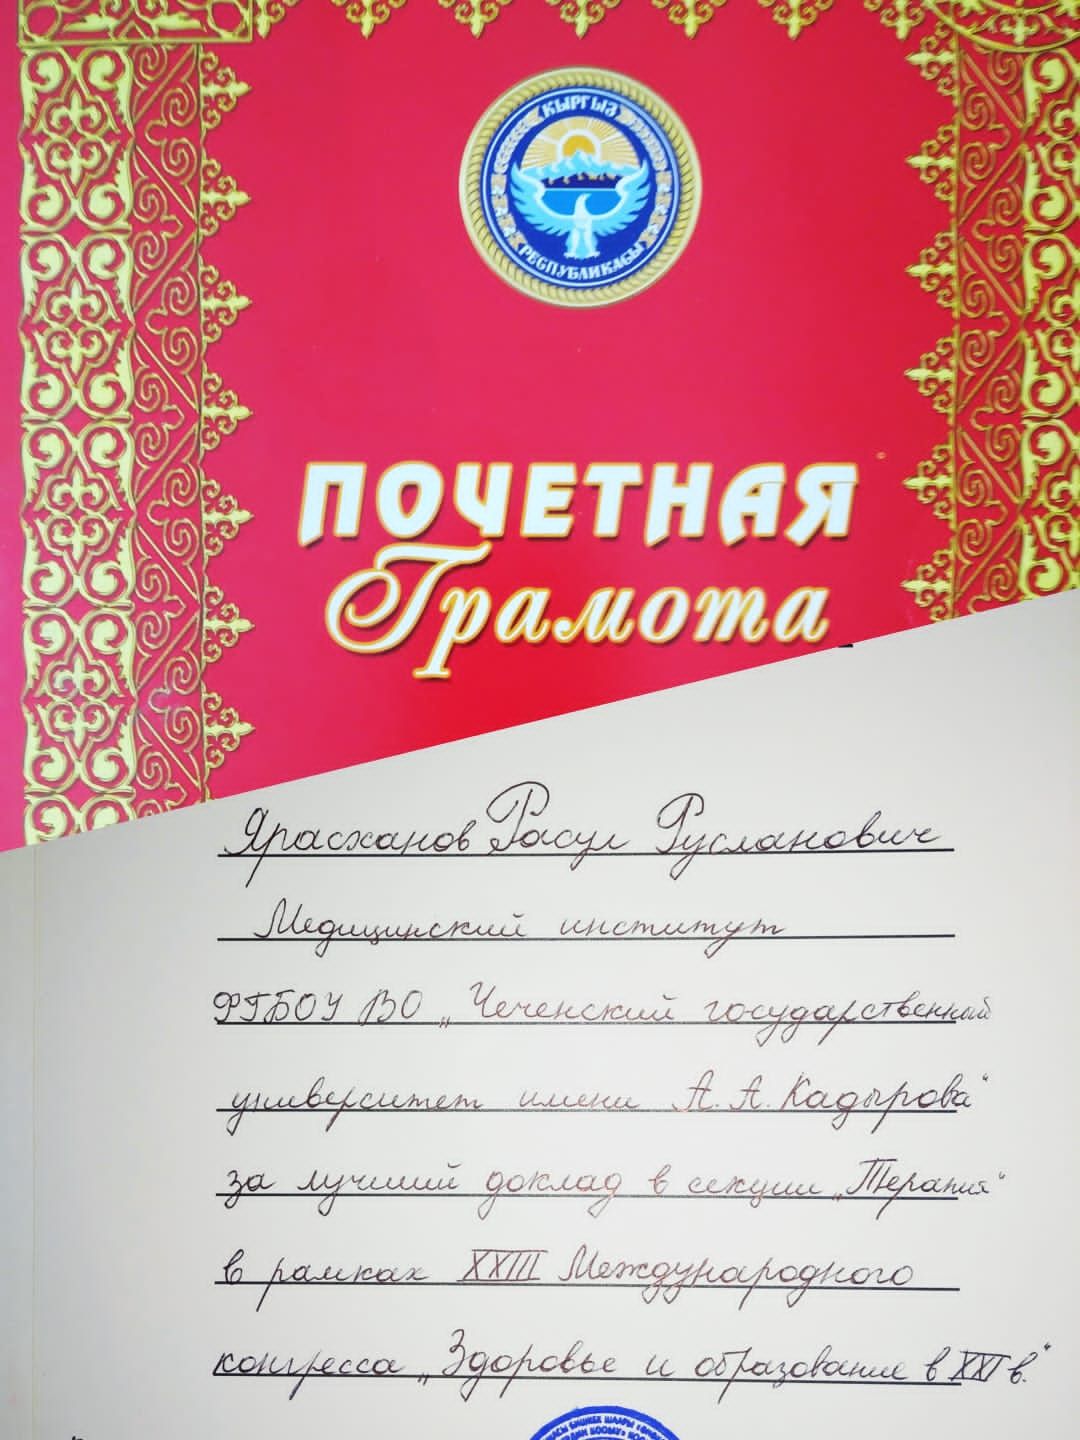 КЫРГЫЗ
РЕСПУБЛИКАСЫ
ПОЧЕТНАЯ
Грамота
Ярасханов Расул Русланович
Медицинский институт
ФГБОУ ВО „Чеченский государственный
университет имени А. А. Кадырова“
за лучший доклад в секции „Терапия“
в рамках XXIII Международного
конгресса „Здоровье и образование в XXI в.“
БИШКЕК ШААРЫ